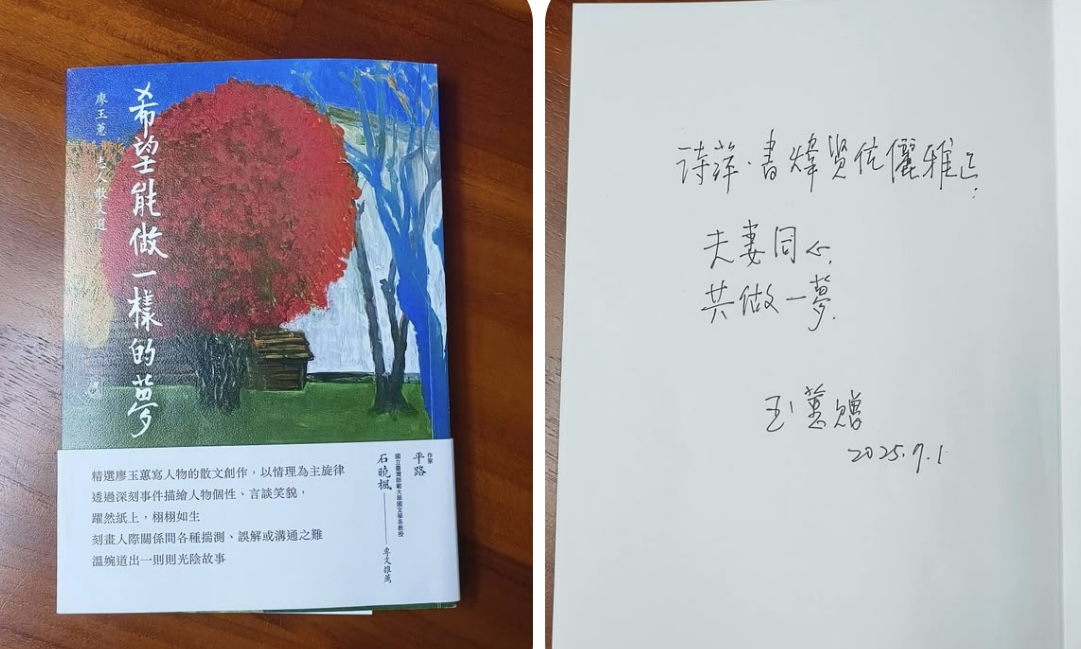 希望能做一樣的夢
廖玉蕙寫人散文選
精選廖玉蕙寫人物的散文創作，以情理為主旋律
透過深刻事件描繪人物個性、言談笑貌，
躍然紙上，栩栩如生
刻畫人際關係間各種揣測、誤解或溝通之難
溫婉道出一則則光陰故事
作家
平路
國立臺灣師範大學國文學系教授
石曉楓
專文推薦
詩萍·書煒賢伉儷雅正：
夫妻同心，
共做一夢。
玉蕙贈
2025.9.1